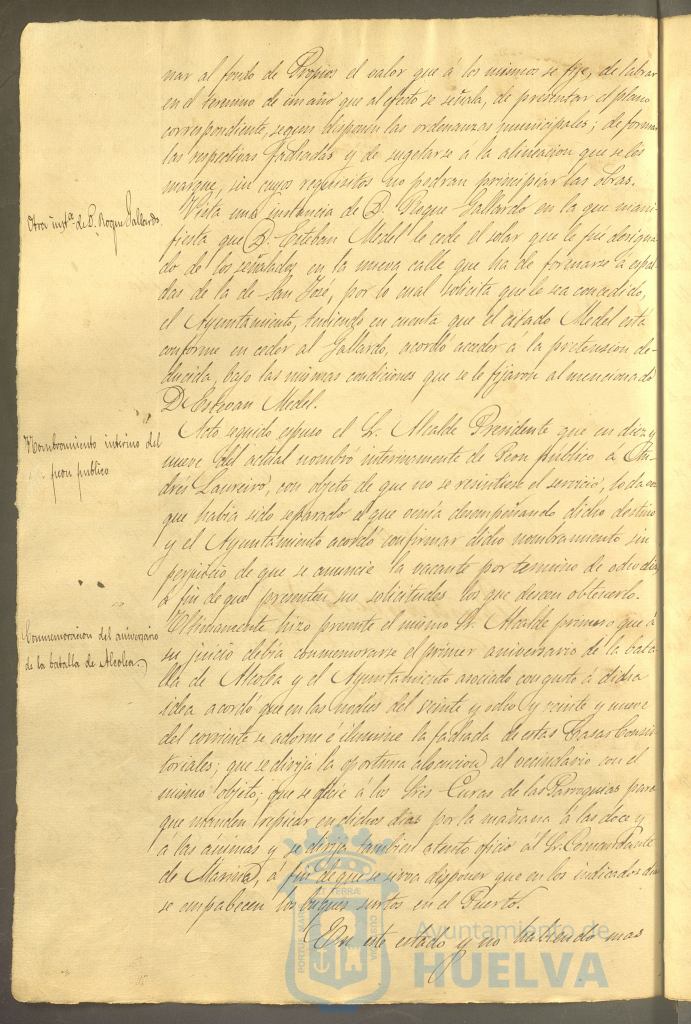 nar al fondo de Propios el valor que á los mismos se fije, de labrar
en el termino de un año que al efecto se señala, de presentar el plano
correspondiente, segun disponen las ordenanzas municipales; de formar
las respectivas fachadas y de sugetarse á la alineacion que se les
marque, sin cuyos requisitos no podran principiar las obras.
Otra inst.ª de D. Roque Gallardo
Vista una instancia de D. Roque Gallardo en la que mani-
fiesta que D. Esteban Medel le cede el solar que le fué designa-
do de los señalados en la nueva calle que ha de formarse á espal-
das de la de San José, por lo cual solicita que le sea concedido,
el Ayuntamiento, teniendo en cuenta que el citado Medel está
conforme en ceder al Gallardo, acordó acceder á la pretension de-
ducida, bajo las mismas condiciones que se le fijaron al mencionado
D. Estevan Medel.
Nombramiento interino del
peon publico
Acto seguido espuso el Sr. Alcalde Presidente que en diez y
nueve del actual nombró interinamente de Peon publico a An-
dres Laureiro, con objeto de que no se resintiese el servicio, toda vez
que habia sido separado el que venia desempeñando dicho destino
y el Ayuntamiento acordó confirmar dicho nombramiento sin
perjuicio de que se anuncie la vacante por termino de ocho dias,
á fin de que presenten sus solicitudes los que deseen obtenerlo.
Conmemoracion del aniversario
de la batalla de Alcolea
Ultimamente hizo presente el mismo Sr. Alcalde primero que á
su juicio debia conmemorarse el primer aniversario de la bata-
lla de Alcolea y el Ayuntamiento asociado con gusto á dicha
idea acordó que en las noches del veinte y ocho y veinte y nueve
del corriente se adorne é ilumine la fachada de estas Casas Consis-
toriales; que se dirija la oportuna alocucion al vecindario con el
mismo objeto; que se oficie á los Sres Curas de las Parroquias para
que manden repicar en dichos dias por la mañana á las doce y
á las animas y se dirija tambien atento oficio al Sr. Comandante
de Marina, á fin de que se sirva disponer que en los indicados dias
se empabecen los buques surtos en el Puerto.
En este estado y no habiendo mas
Ayuntamiento de
HUELVA